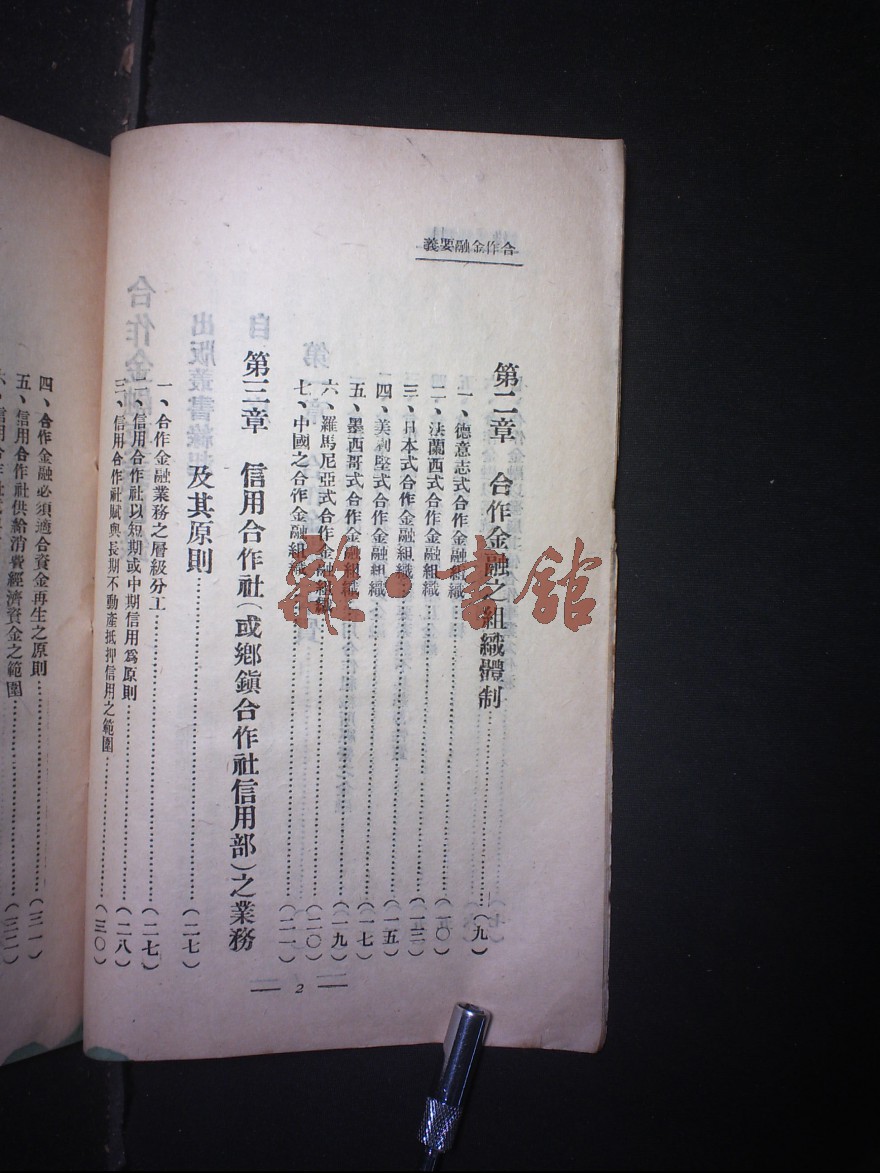 合作金融要義
第二章　合作金融之組織體制………(九)
一、德意志式合作金融組織………(一〇)
二、法蘭西式合作金融組織………(一三)
三、日本式合作金融組織………(一五)
四、美利堅式合作金融組織………(一七)
五、墨西哥式合作金融組織………(一九)
六、羅馬尼亞式合作金融組織………(二〇)
七、中國之合作金融組織………(二一)
第三章　信用合作社(或鄉鎮合作社信用部)之業務
及其原則………(二七)
一、合作金融業務之層級分工………(二七)
二、信用合作社以短期或中期信用爲原則………(二八)
三、信用合作社賦與長期不動產抵押信用之範圍………(三〇)
2
四、合作金融必須適合資金再生之原則………(三一)
五、信用合作社供給消費經濟資金之範圍………(三二)
雜·書館